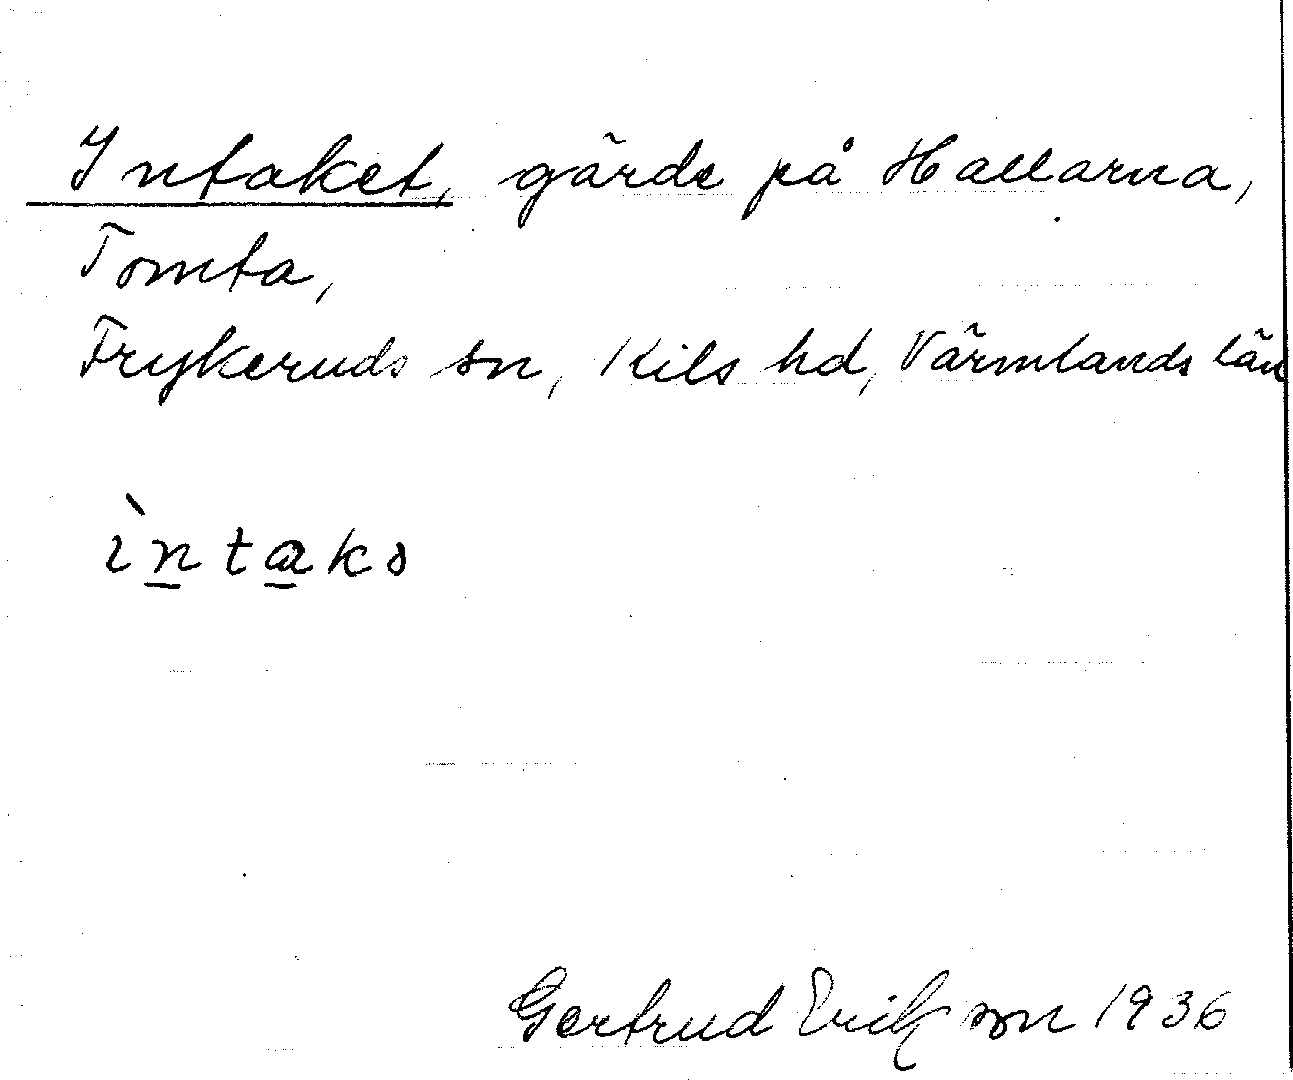 Intaket, gärde på Hallarna,
Tomta,
Frykeruds sn, Kils hd, Värmlands län
ìntaks
Gertrud Erikson 1936